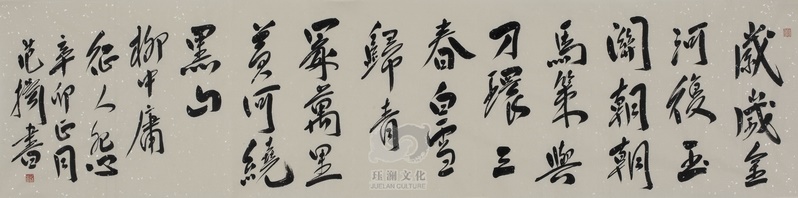 歲歲金
河復玉
關朝朝
馬策與
刀環三
春白雪
歸青
冢萬里
黃河繞
黑山
柳中庸
征人怨
辛卯正月
范揚書
珏瀾文化
JUELAN CULTURE